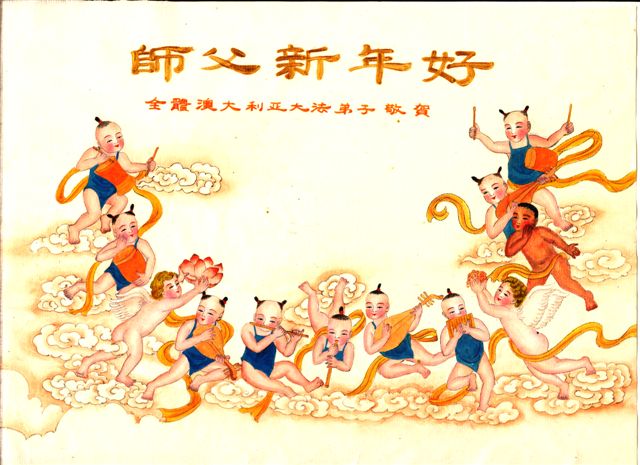 師父新年好
全體澳大利亞大法弟子敬賀